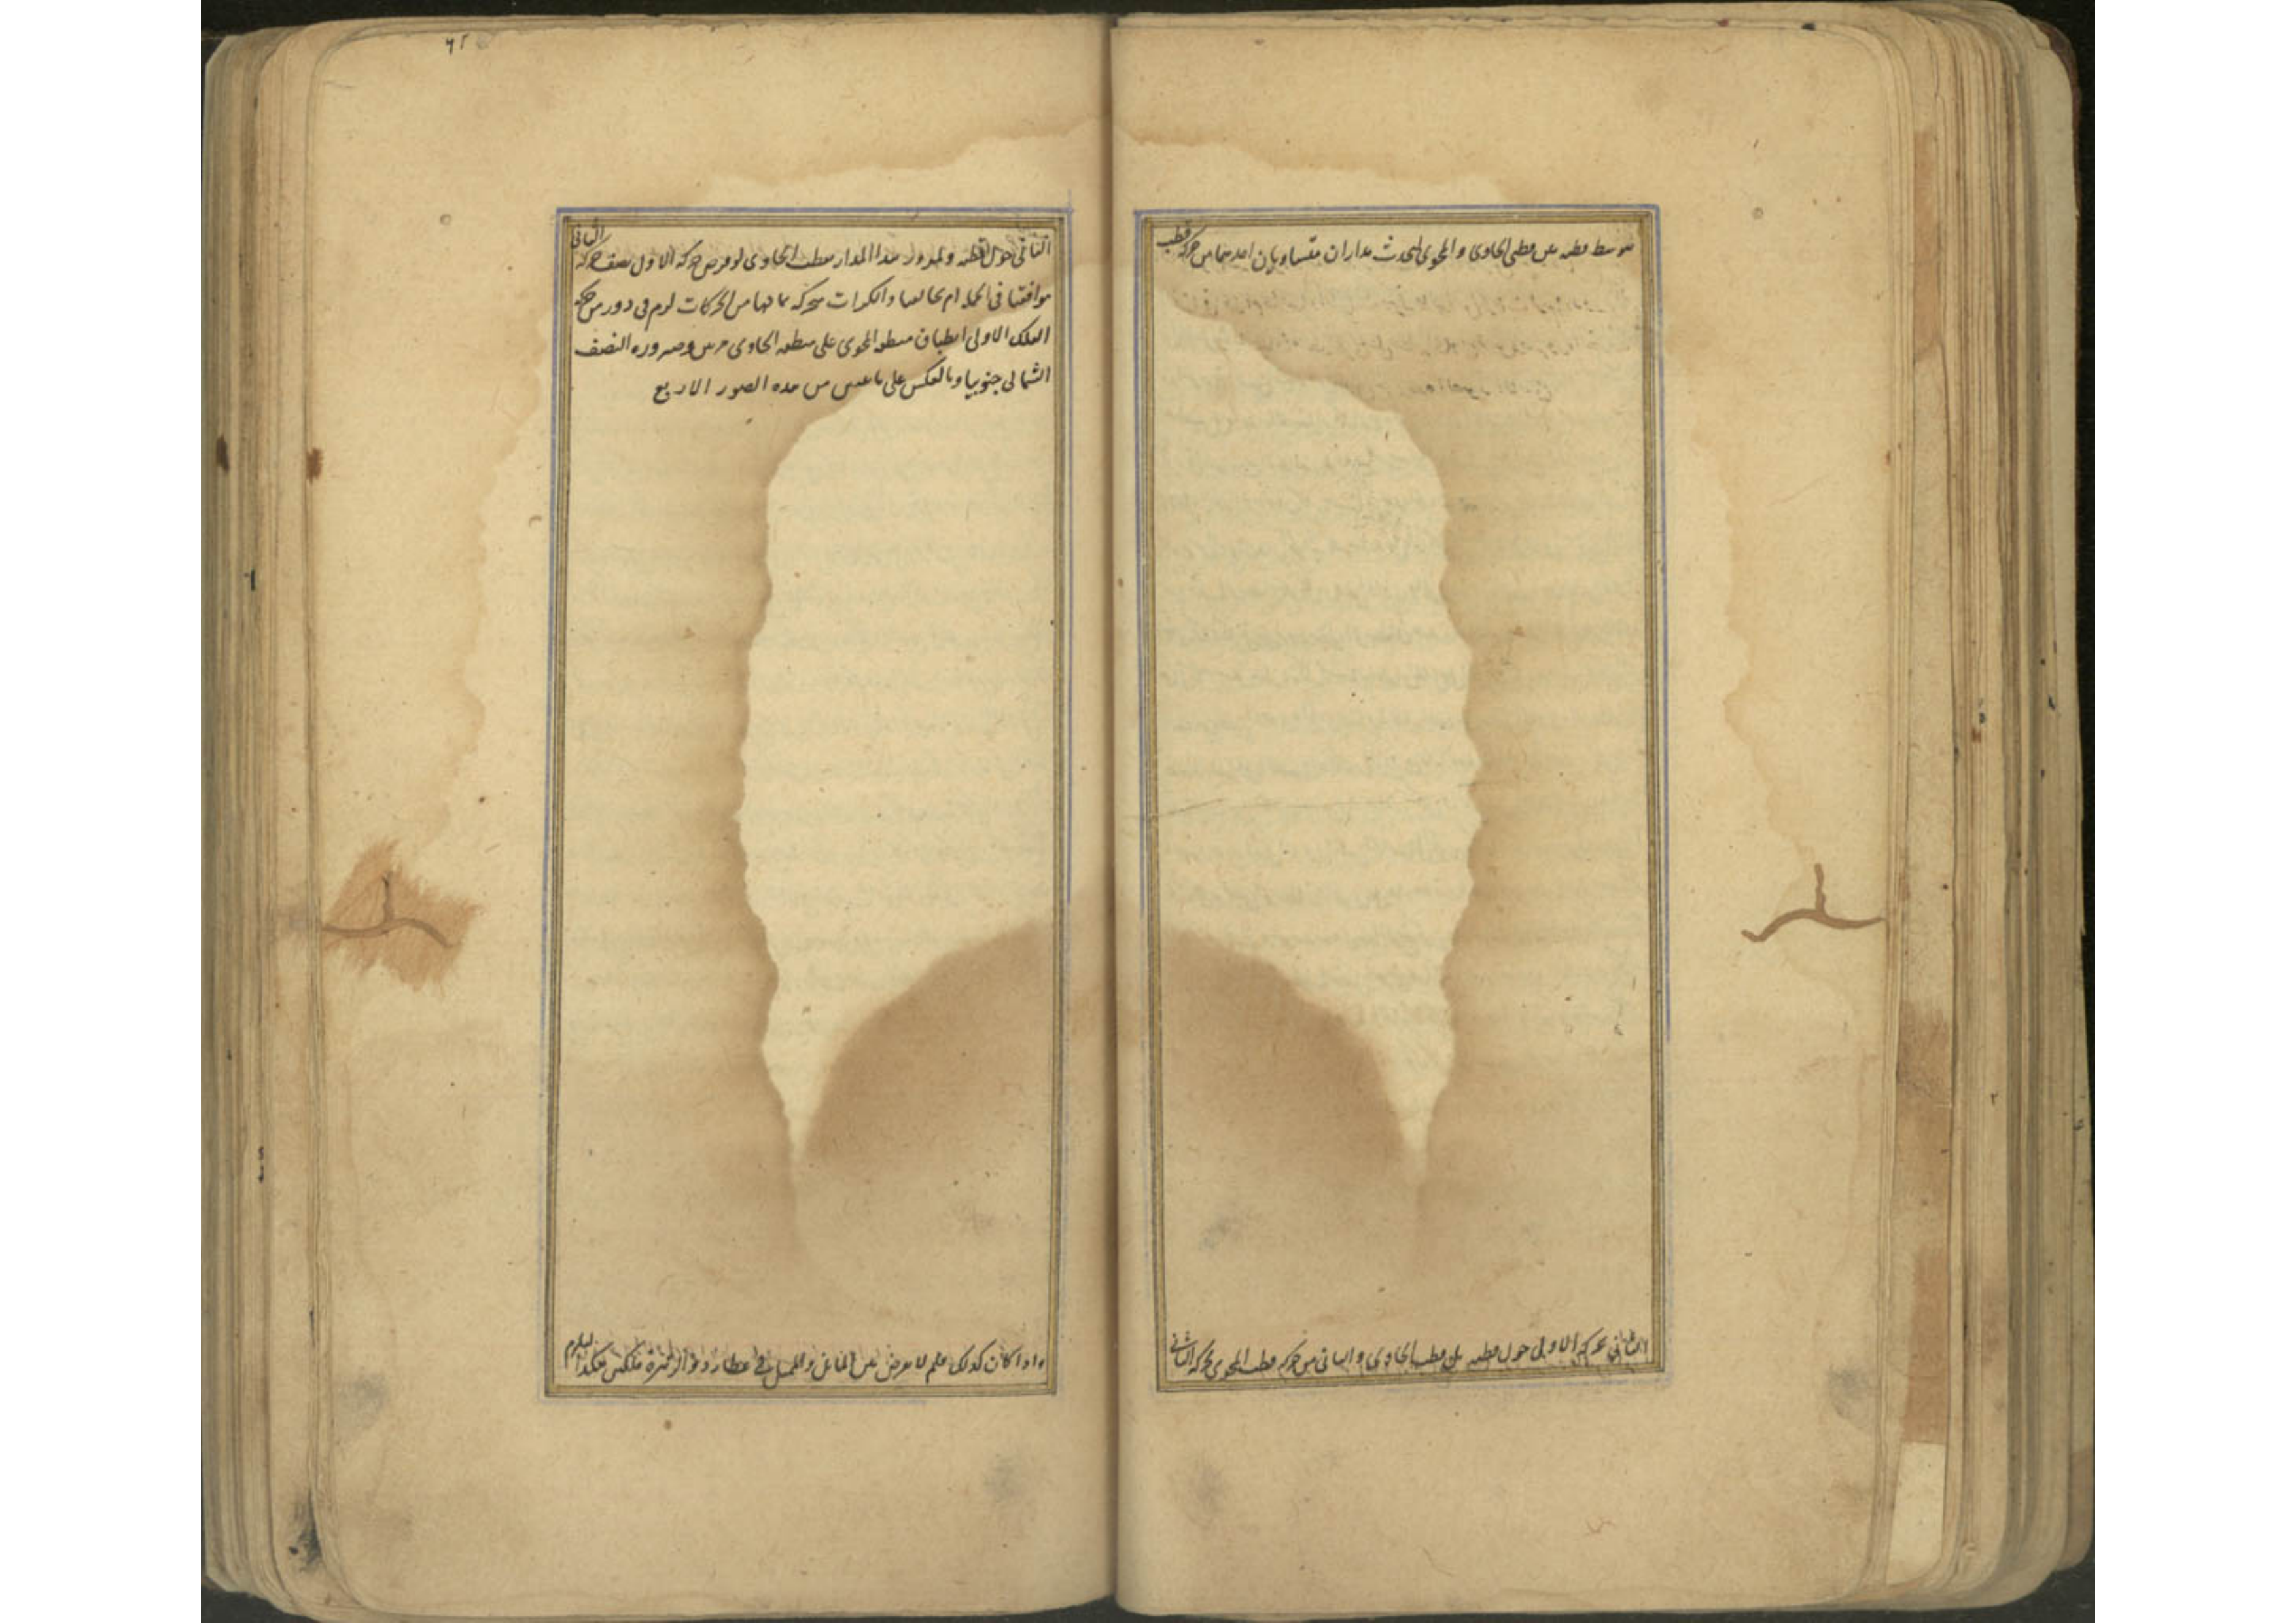 يتوسط قطبه بين قطبي الحاوي والمحوي ليحدث مداران متساويان احدهما من حركة قطب
الثاني بحركة الاولى حول قطبه بل قطب الحاوي والثاني من حركة قطب المحوي بحركة الثاني
٦٢
الثاني حول قطبه ولمرور هذا المدار بقطب الحاوي لو فرض حركة الاول نصف حركة الثاني
موافقتها في الجهة ام مخالفها والكرات متحركة بما لها من الحركات لزم في دور من حركة
الفلك الاولى انطباق منطقة المحوي على منطقة الحاوي مرتين وصيرورة النصف
الشمالي جنوبيا وبالعكس على ما من هذه الصور الاربع
واذا كان كذلك فلم لا يعرض بين المائل والممثل في عطارد والزهرة فلكين هكذا ليلزم